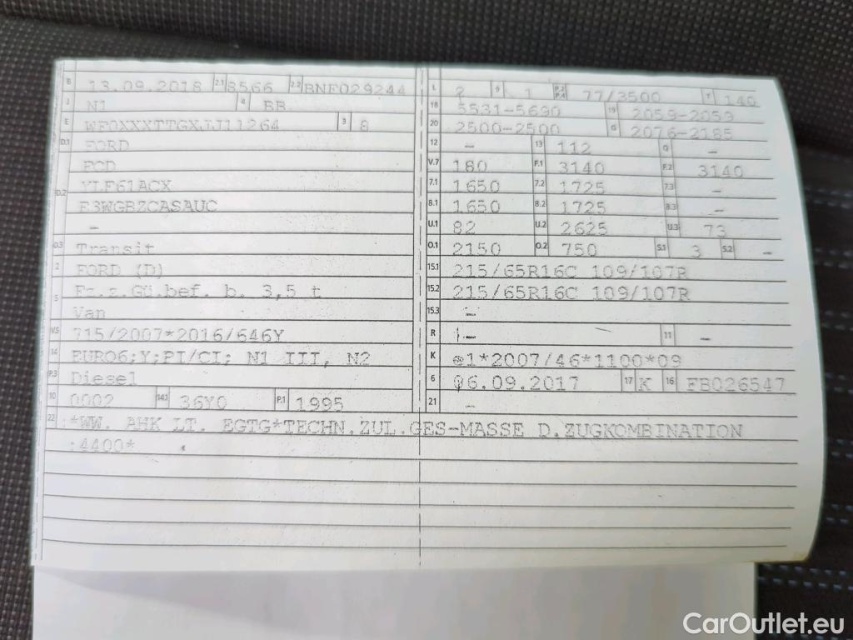 B 13.09.2018 2.1 8566 2.2 BNF029244
J N1 4 BB
E WF0XXXTTGXJJ11264 3 8
D.1 FORD
FCD
D.2 YLF61ACX
E3WGBZCASAUC
-
D.3 Transit
2 FORD (D)
5 Fz.z.Gü.bef. b. 3,5 t
Van
V.9 715/2007*2016/646Y
14 EURO6;Y;PI/CI; N1 III, N2
P.3 Diesel
10 0002 14.1 36Y0 P.1 1995
L 2 9 1 P.2 P.4 77/3500 T 140
18 5531-5690 19 2059-2059
20 2500-2500 G 2076-2185
12 - 13 112 Q -
V.7 180 F.1 3140 F.2 3140
7.1 1650 7.2 1725 7.3 -
8.1 1650 8.2 1725 8.3 -
U.1 82 U.2 2625 U.3 73
O.1 2150 O.2 750 S.1 3 S.2 -
15.1 215/65R16C 109/107R
15.2 215/65R16C 109/107R
15.3 -
R - 11 -
K e1*2007/46*1100*09
6 06.09.2017 17 K 16 FB026547
21 -
22 :*WW. AHK LT. EGTG*TECHN.ZUL.GES-MASSE D.ZUGKOMBINATION
:4400*
CarOutlet.eu